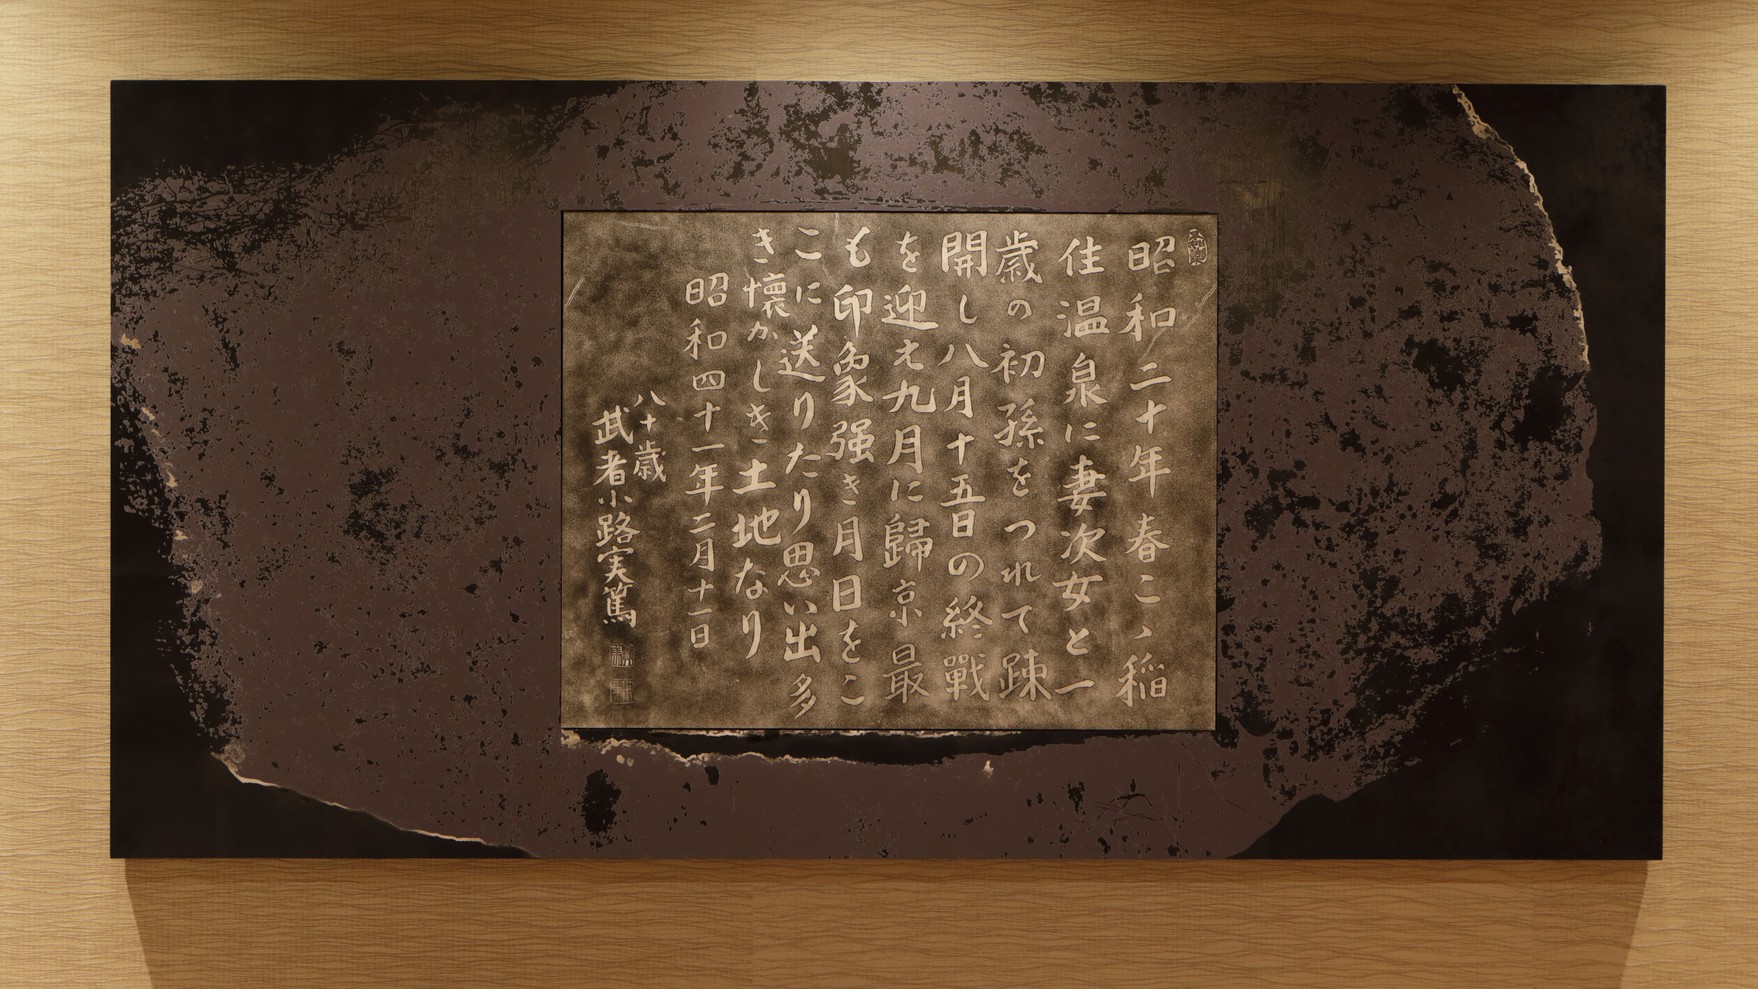 昭和二十年春こゝ稲
住温泉に妻次女と一
歳の初孫をつれて疎
開し八月十五日の終戰
を迎え九月に歸京最
も印象强き月日をこ
こに送りたり思い出多
き懐かしき土地なり
昭和四十一年二月十一日
八十歳
武者小路実篤